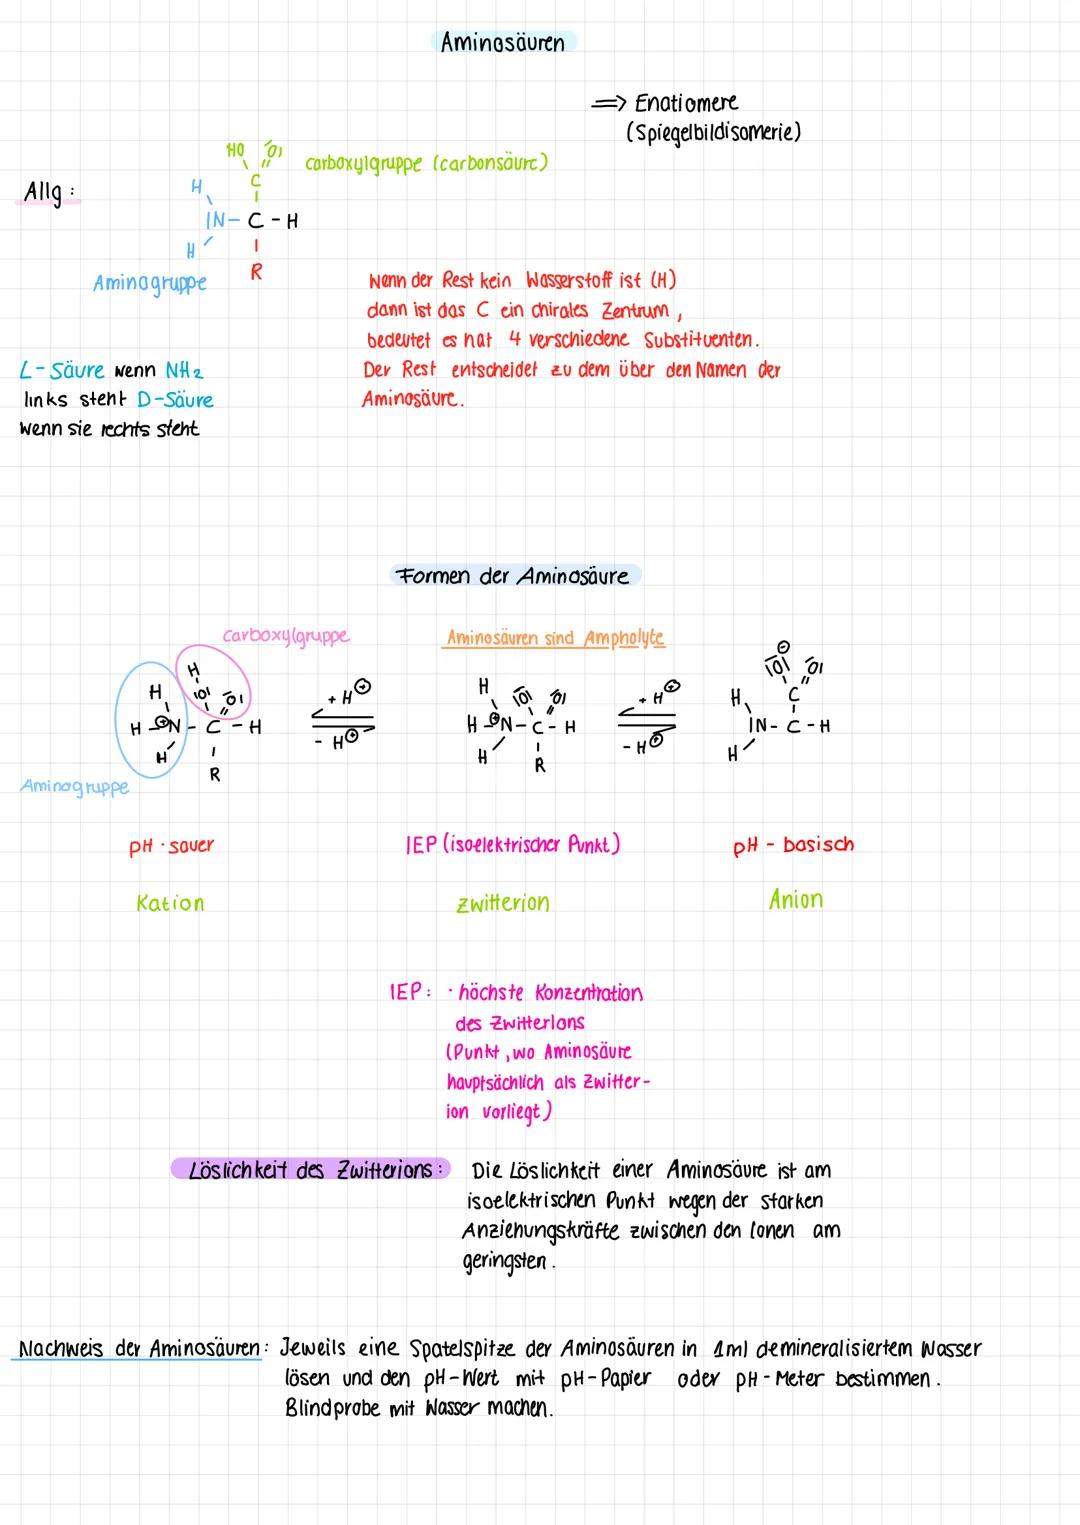 Aminosäuren
=> Enatiomere
(Spiegelbildisomerie)
Allg:
HO O
C
carboxylgruppe (carbonsäure)
H
IN - C - H
H
R
Aminogruppe
Wenn der Rest kein Wasserstoff ist (H)
dann ist das C ein chirales Zentrum,
bedeutet es hat 4 verschiedene Substituenten.
Der Rest entscheidet zu dem über den Namen der
Aminosäure.
L-Säure wenn NH2
links steht D-Säure
wenn sie rechts steht
Formen der Aminosäure
carboxylgruppe
Aminosäuren sind Ampholyte
H
H O O
H ⊕N - C - H
H
R
Aminogruppe
+ H⊕
- H⊕
H O O
H ⊕N - C - H
H
R
+ H⊕
- H⊕
⊖
O O
C
H
IN - C - H
H
pH - sauer
IEP (isoelektrischer Punkt)
pH - basisch
Kation
Zwitterion
Anion
IEP: · höchste Konzentration
des Zwitterions
(Punkt, wo Aminosäure
hauptsächlich als Zwitter-
ion vorliegt)
Löslichkeit des Zwitterions: Die Löslichkeit einer Aminosäure ist am
isoelektrischen Punkt wegen der starken
Anziehungskräfte zwischen den Ionen am
geringsten.
Nachweis der Aminosäuren: Jeweils eine Spatelspitze der Aminosäuren in 1ml demineralisiertem Wasser
lösen und den pH-Wert mit pH-Papier oder pH-Meter bestimmen.
Blindprobe mit Wasser machen.